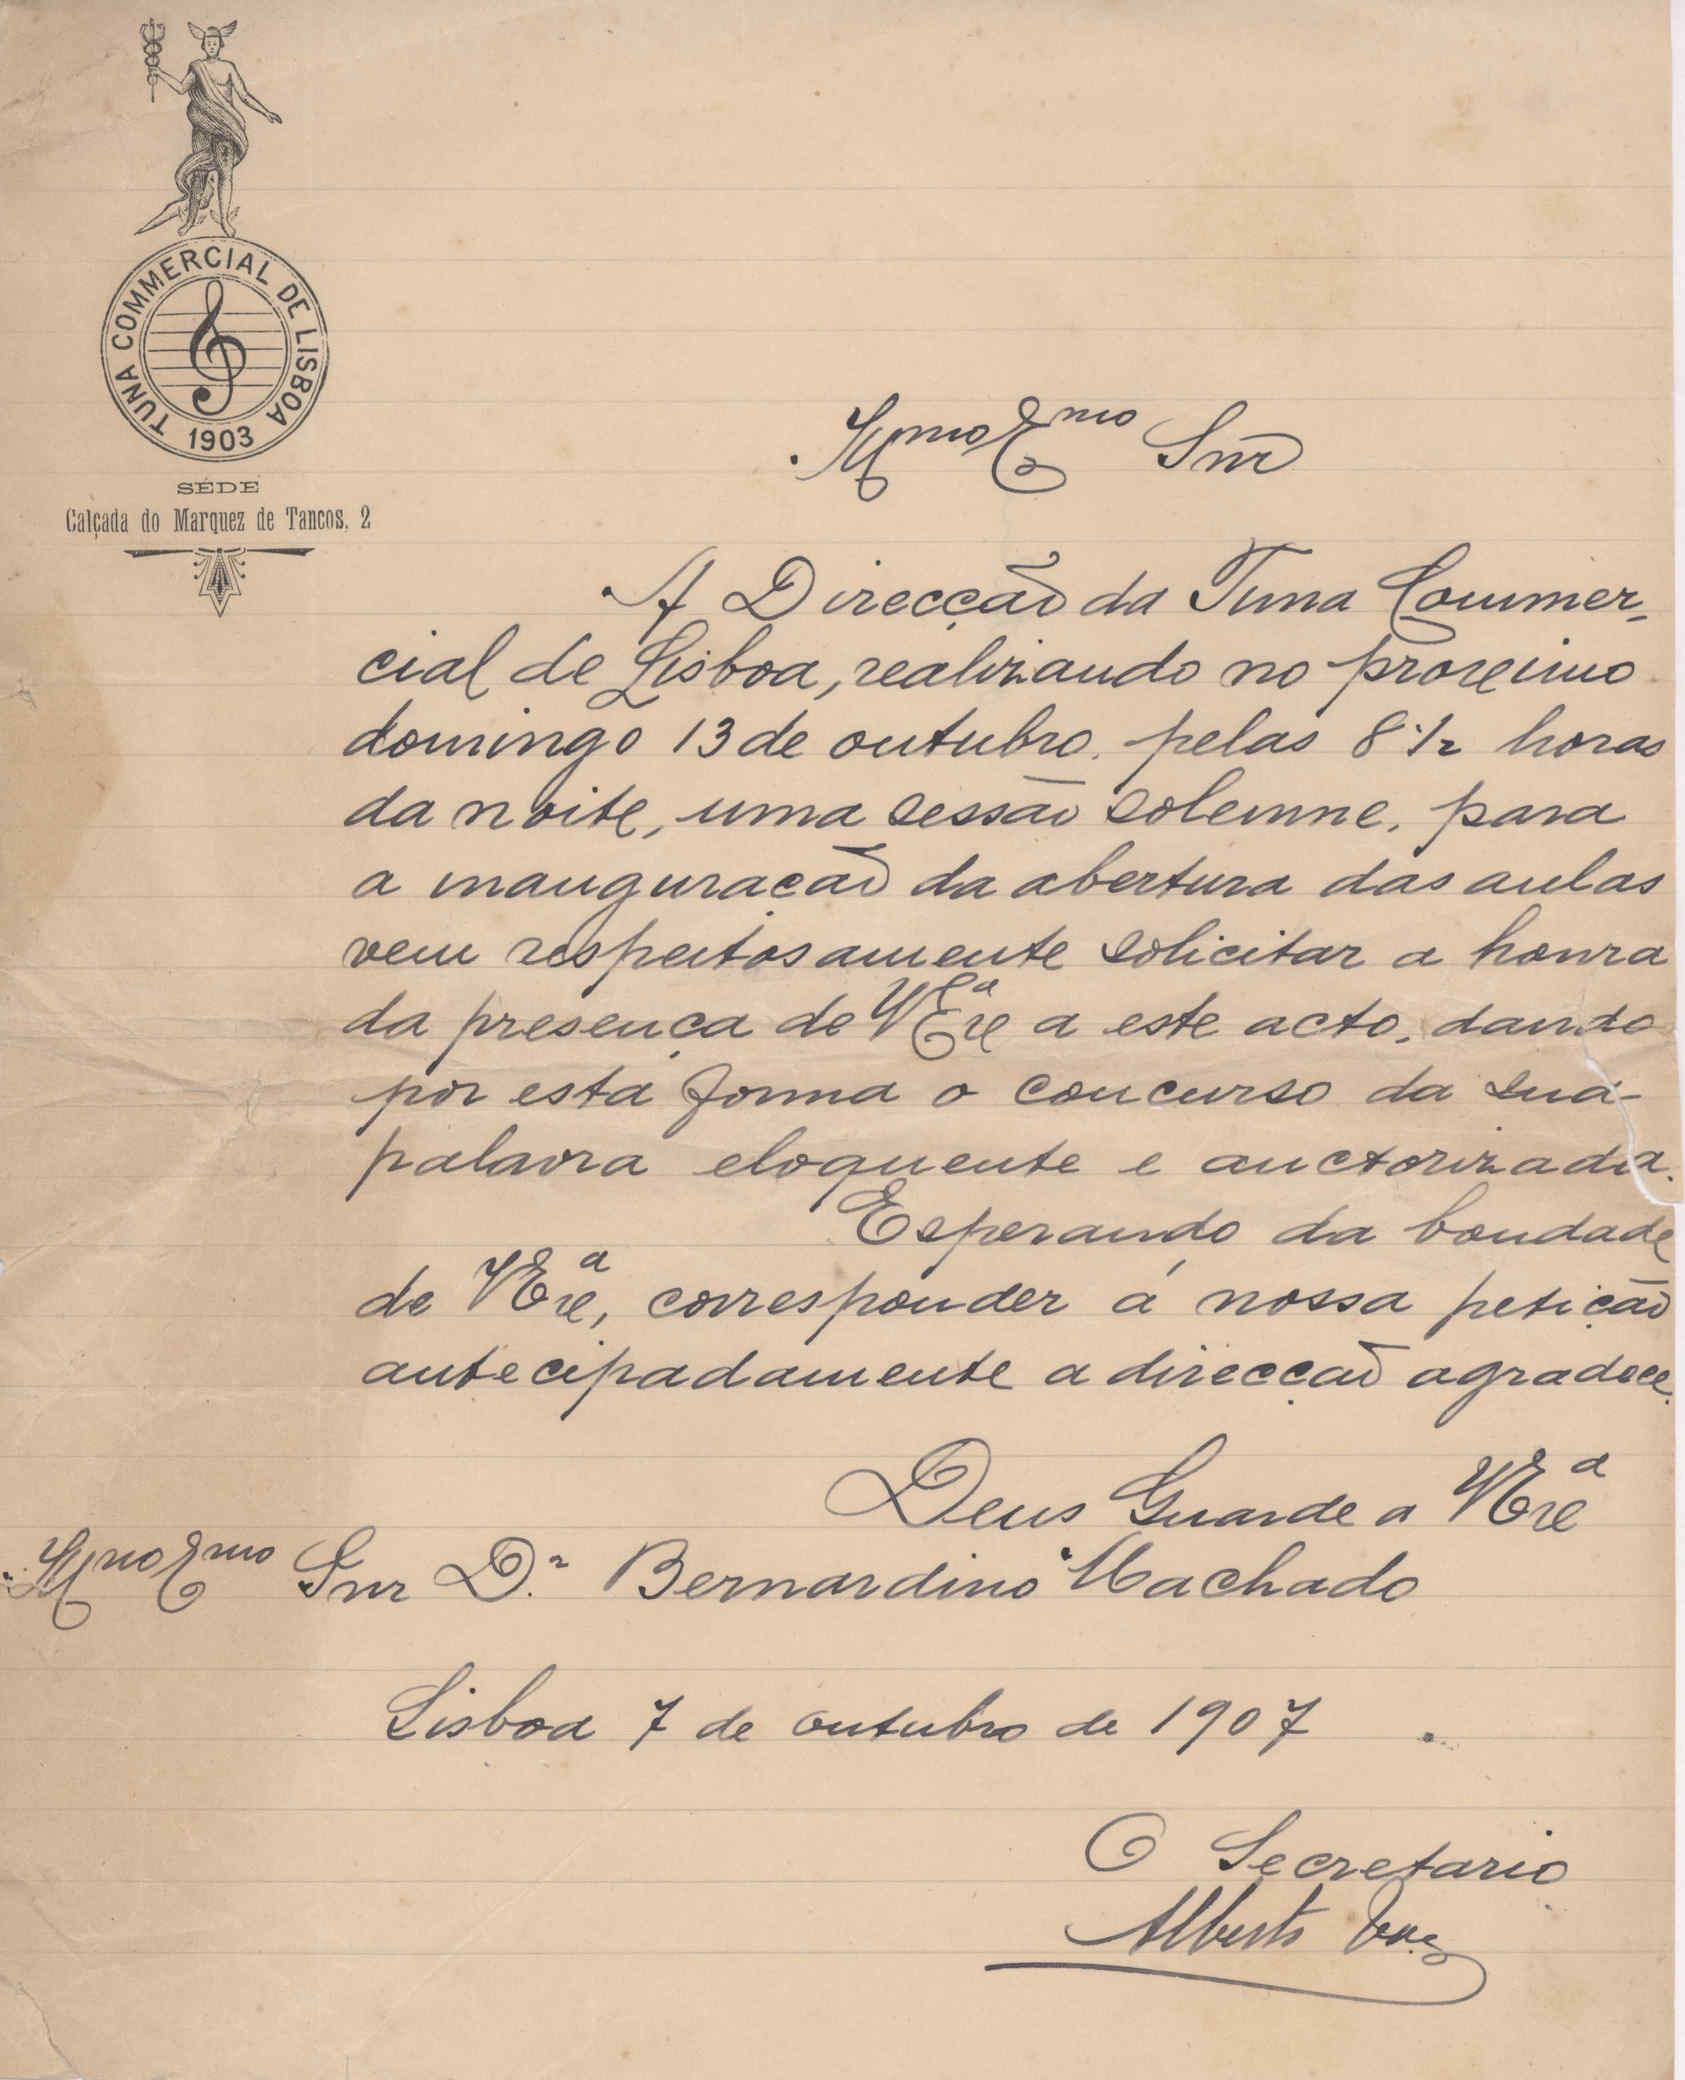 TUNA COMMERCIAL DE LISBOA
1903
SÉDE
Calçada do Marquez de Tancos, 2
Illmo Exmo Snr
A Direcção da Tuna Commer-
cial de Lisboa, realizando no proximo
domingo 13 de outubro, pelas 8 1/2 horas
da noite, uma sessão solemne, para
a inauguração da abertura das aulas
vem respeitosamente solicitar a honra
da presença de V Exª a este acto, dando
por esta forma o concurso da sua
palavra eloquente e auctorizada.
Esperando da bondade
de V Exª, corresponder á nossa petição
antecipadamente a direcção agradece.
Deus Guarde a V Exª
Illmo Exmo Snr Dr Bernardino Machado
Lisboa 7 de outubro de 1907
O Secretario
Alberto Vaz